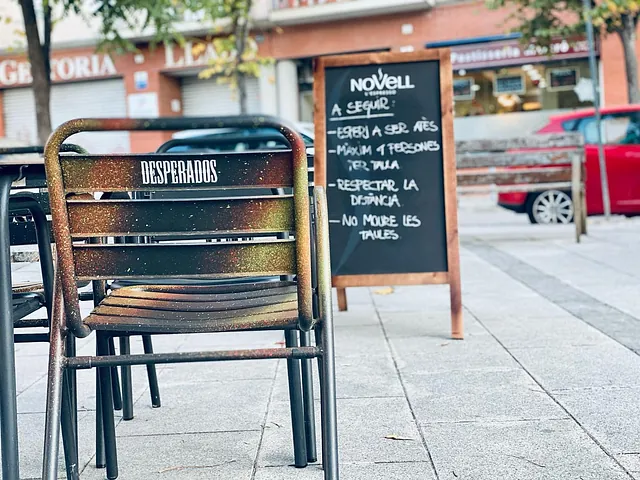 GESTORIA
NOVELL
A SEGUIR:
- ESPERI A SER ATÈS
- MÀXIM 4 PERSONES
PER TAULA
- RESPECTAR LA
DISTÀNCIA
- NO MOURE LES
TAULES.
DESPERADOS